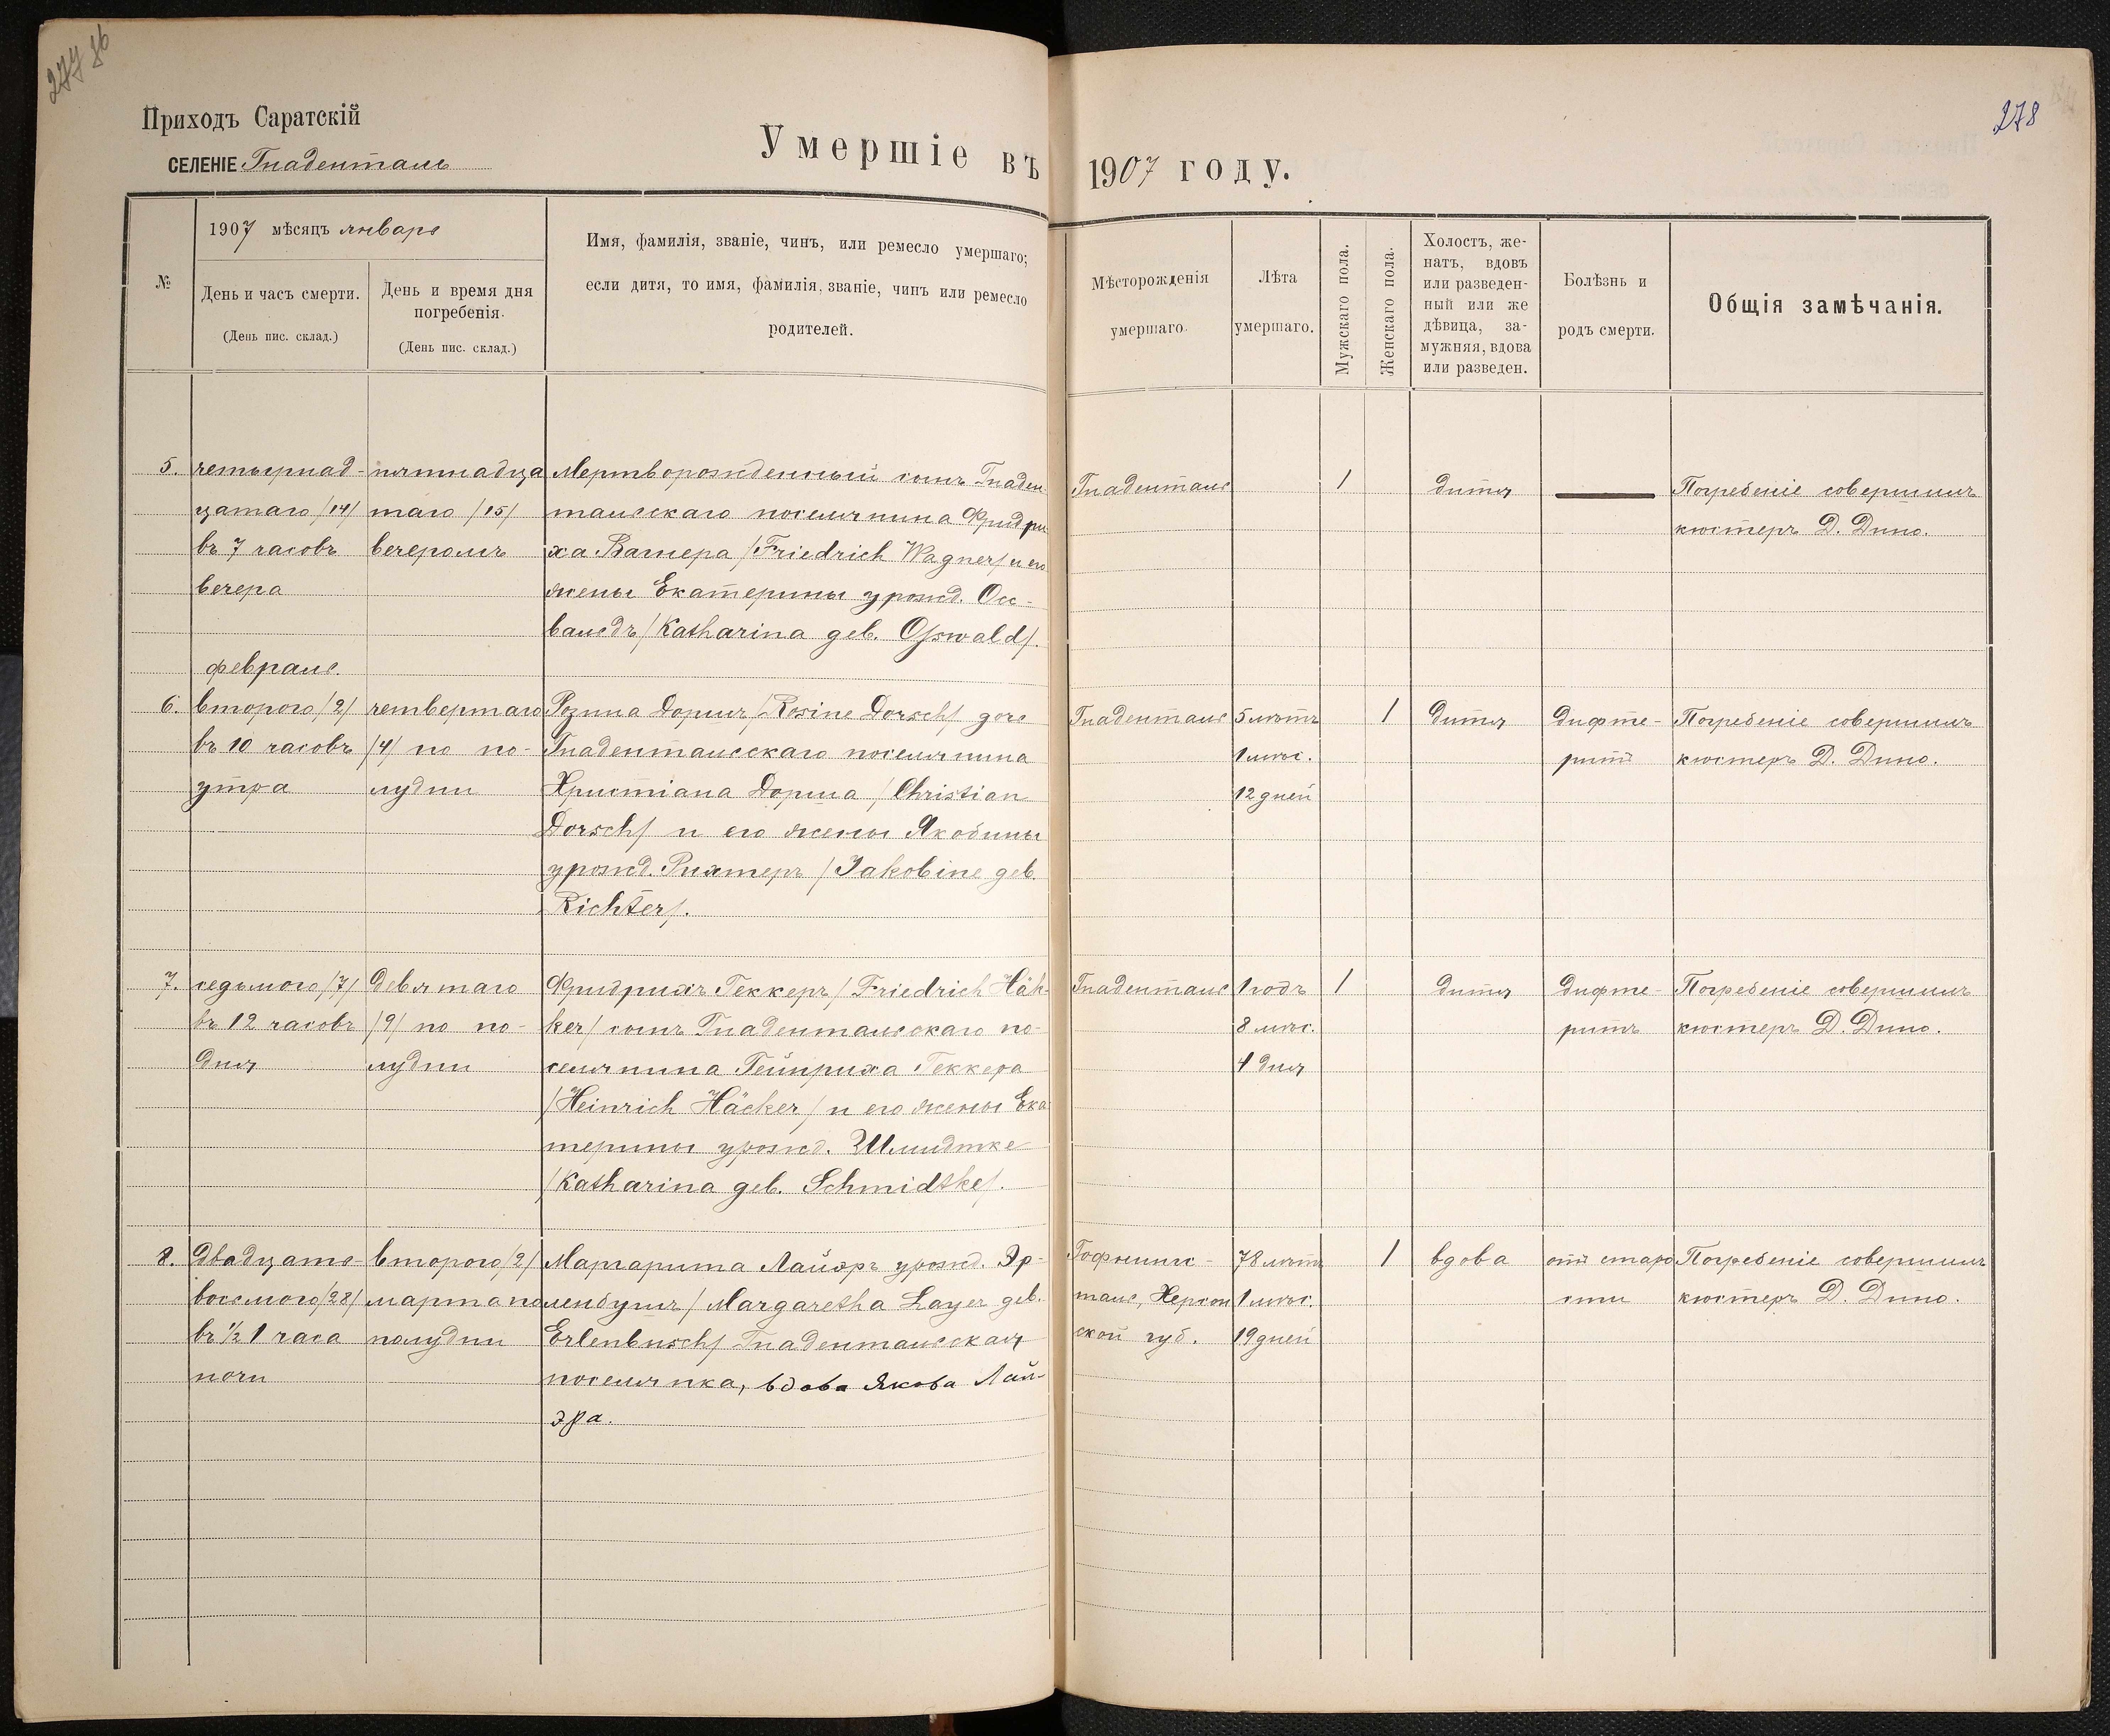 277 86
278
Приходъ Саратскій
СЕЛЕНІЕ Гнаденталь
Умершіе въ 1907 году.
№
1907 мѣсяцъ январь
День и часъ смерти.
(День пис. склад.)
День и время дня
погребенія.
(День пис. склад.)
Имя, фамилія, званіе, чинъ, или ремесло умершаго;
если дитя, то имя, фамилія, званіе, чинъ или ремесло
родителей.
Мѣсторожденія
умершаго.
Лѣта
умершаго.
Мужскаго пола.
Женскаго пола.
Холостъ, же-
натъ, вдовъ
или разведен-
ный или же
дѣвица, за-
мужняя, вдова
или разведен.
Болѣзнь и
родъ смерти.
Общія замѣчанія.
5.
четырнад-
цатаго /14/
въ 7 часовъ
вечера
пятнадца
таго /15/
вечеромъ
Мертворожденный сынъ Гнаден
тальскаго поселянина Фридри
ха Вагнера /Friedrich Wagner/ и его
жены Екатерины урожд. Ос-
вальдъ /Katharina geb. Osswald/.
Гнаденталь
1
дитя
Погребеніе совершилъ
кюстеръ Д. Дино.
февраль.
6.
второго /2/
въ 10 часовъ
утра
четвертаго
/4/ по по-
лудни
Розина Доршъ /Rosine Dorsch/ дочь
Гнадентальскаго поселянина
Христіана Дорша /Christian
Dorsch/ и его жены Якобины
урожд. Рихтеръ /Jakobine geb.
Richter/.
Гнаденталь
5 лѣтъ
1 мѣс.
12 дней
1
дитя
дифте-
ритъ
Погребеніе совершилъ
кюстеръ Д. Дино.
7.
седьмого /7/
въ 12 часовъ
дня
девятаго
/9/ по по-
лудни
Фридрихъ Геккеръ /Friedrich Häk-
ker/ сынъ Гнадентальскаго по-
селянина Гейнриха Геккера
/Heinrich Häcker/ и его жены Ека
терины урожд. Шмидтке
/Katharina geb. Schmidtke/.
Гнаденталь
1 годъ
8 мѣс.
4 дня
1
дитя
дифте-
ритъ
Погребеніе совершилъ
кюстеръ Д. Дино.
8.
двадцать-
восьмого /28/
въ ½ 1 часа
ночи
второго /2/
марта по
полудни
Маргарита Лайэръ урожд. Эр-
ленбушъ /Margaretha Layer geb.
Erlenbusch/ Гнадентальская
поселянка, вдова Якова Лай-
эра.
Гофнунгс-
таль, Херсон
ской губ.
78 лѣтъ
1 мѣс.
19 дней
1
вдова
отъ старо
сти
Погребеніе совершилъ
кюстеръ Д. Дино.